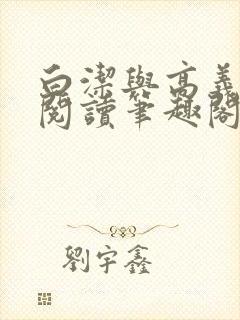 白潔與高義
閱讀筆趣閣
劉宇鑫